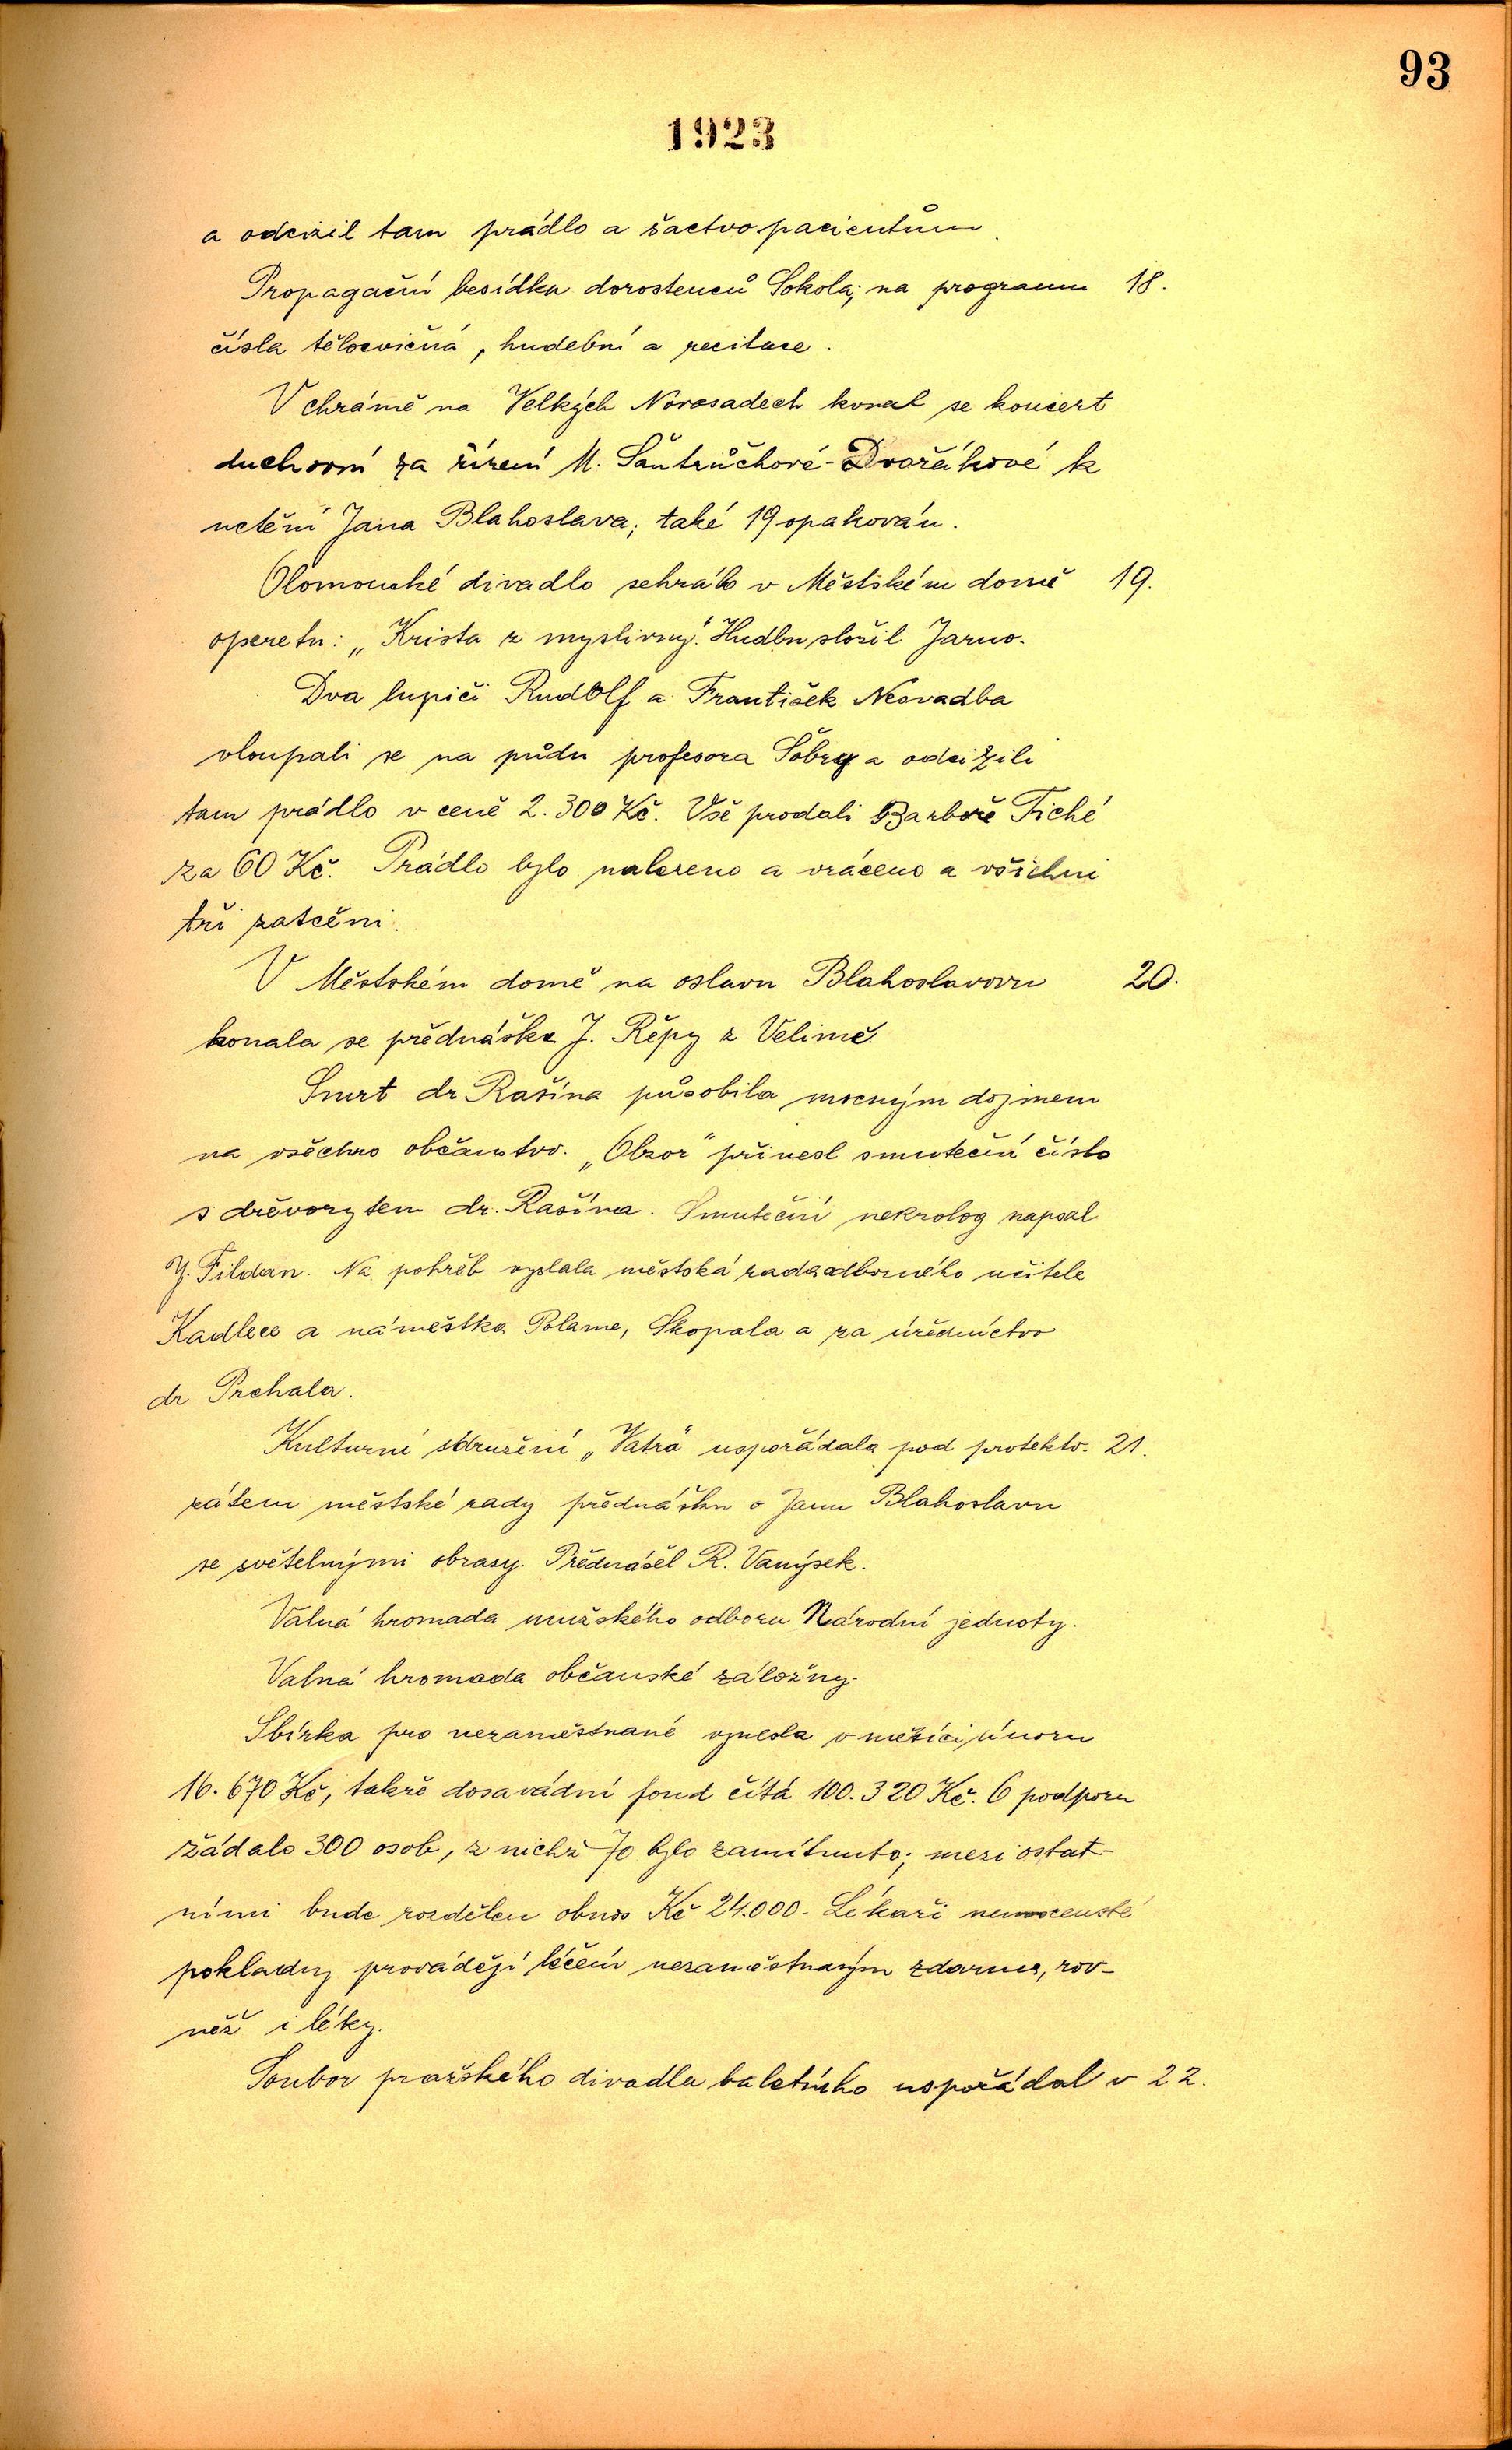 93
1923
a odcizil tam prádlo a šactvo pacientům.
Propagační besídka dorostenců Sokola; na programu 18.
čísla tělocvičná, hudební a recitace.
V chrámě na Velkých Novosadech konal se koncert
duchovní za řízení M. Šantrůčkové-Dvořákové k
uctění Jana Blahoslava; také 19 opakován.
Olomoucké divadlo sehrálo v Městském domě 19.
operetu: „Krista z myslivny". Hudbu složil Jarno.
Dva lupiči Rudolf a František Neovadba
vloupali se na půdu profesora Sobry a odcizili
tam prádlo v ceně 2.300 Kč. Vše prodali Barboře Tiché
za 60 Kč. Prádlo bylo nalezeno a vráceno a všichni
tři zatčeni.
V Městském domě na oslavu Blahoslavovu 20.
konala se přednáška J. Řépy z Velimě.
Smrt dr Rašína působila mocným dojmem
na všechno občanstvo. „Obzor" přinesl smuteční číslo
s dřevorytem dr. Rašína. Smuteční nekrolog napsal
J. Fildan. Na pohřeb vyslala městská rada odborného učitele
Kadlece a náměstka Polame, Skopala a za úřednictvo
dr Prchala.
Kulturní sdružení „Vatra" uspořádala pod protekto- 21.
rátem městské rady přednášku o Janu Blahoslavu
se světelnými obrasy. Přednášel R. Vanýsek.
Valná hromada mužského odboru Národní jednoty.
Valná hromada občanské záložny.
Sbírka pro nezaměstnané vynesla v měsíci únoru
16.670 Kč, takže dosavádní fond čítá 100.320 Kč. O podporu
žádalo 300 osob, z nichž 70 bylo zamítnuto; mezi ostat-
ními bude rozdělen obnos Kč 24.000. Lékaři nemocenské
pokladny provádějí léčení nezaměstnaným zdarma, rov-
něž i léky.
Soubor pražského divadla baletního uspořádal v 22.